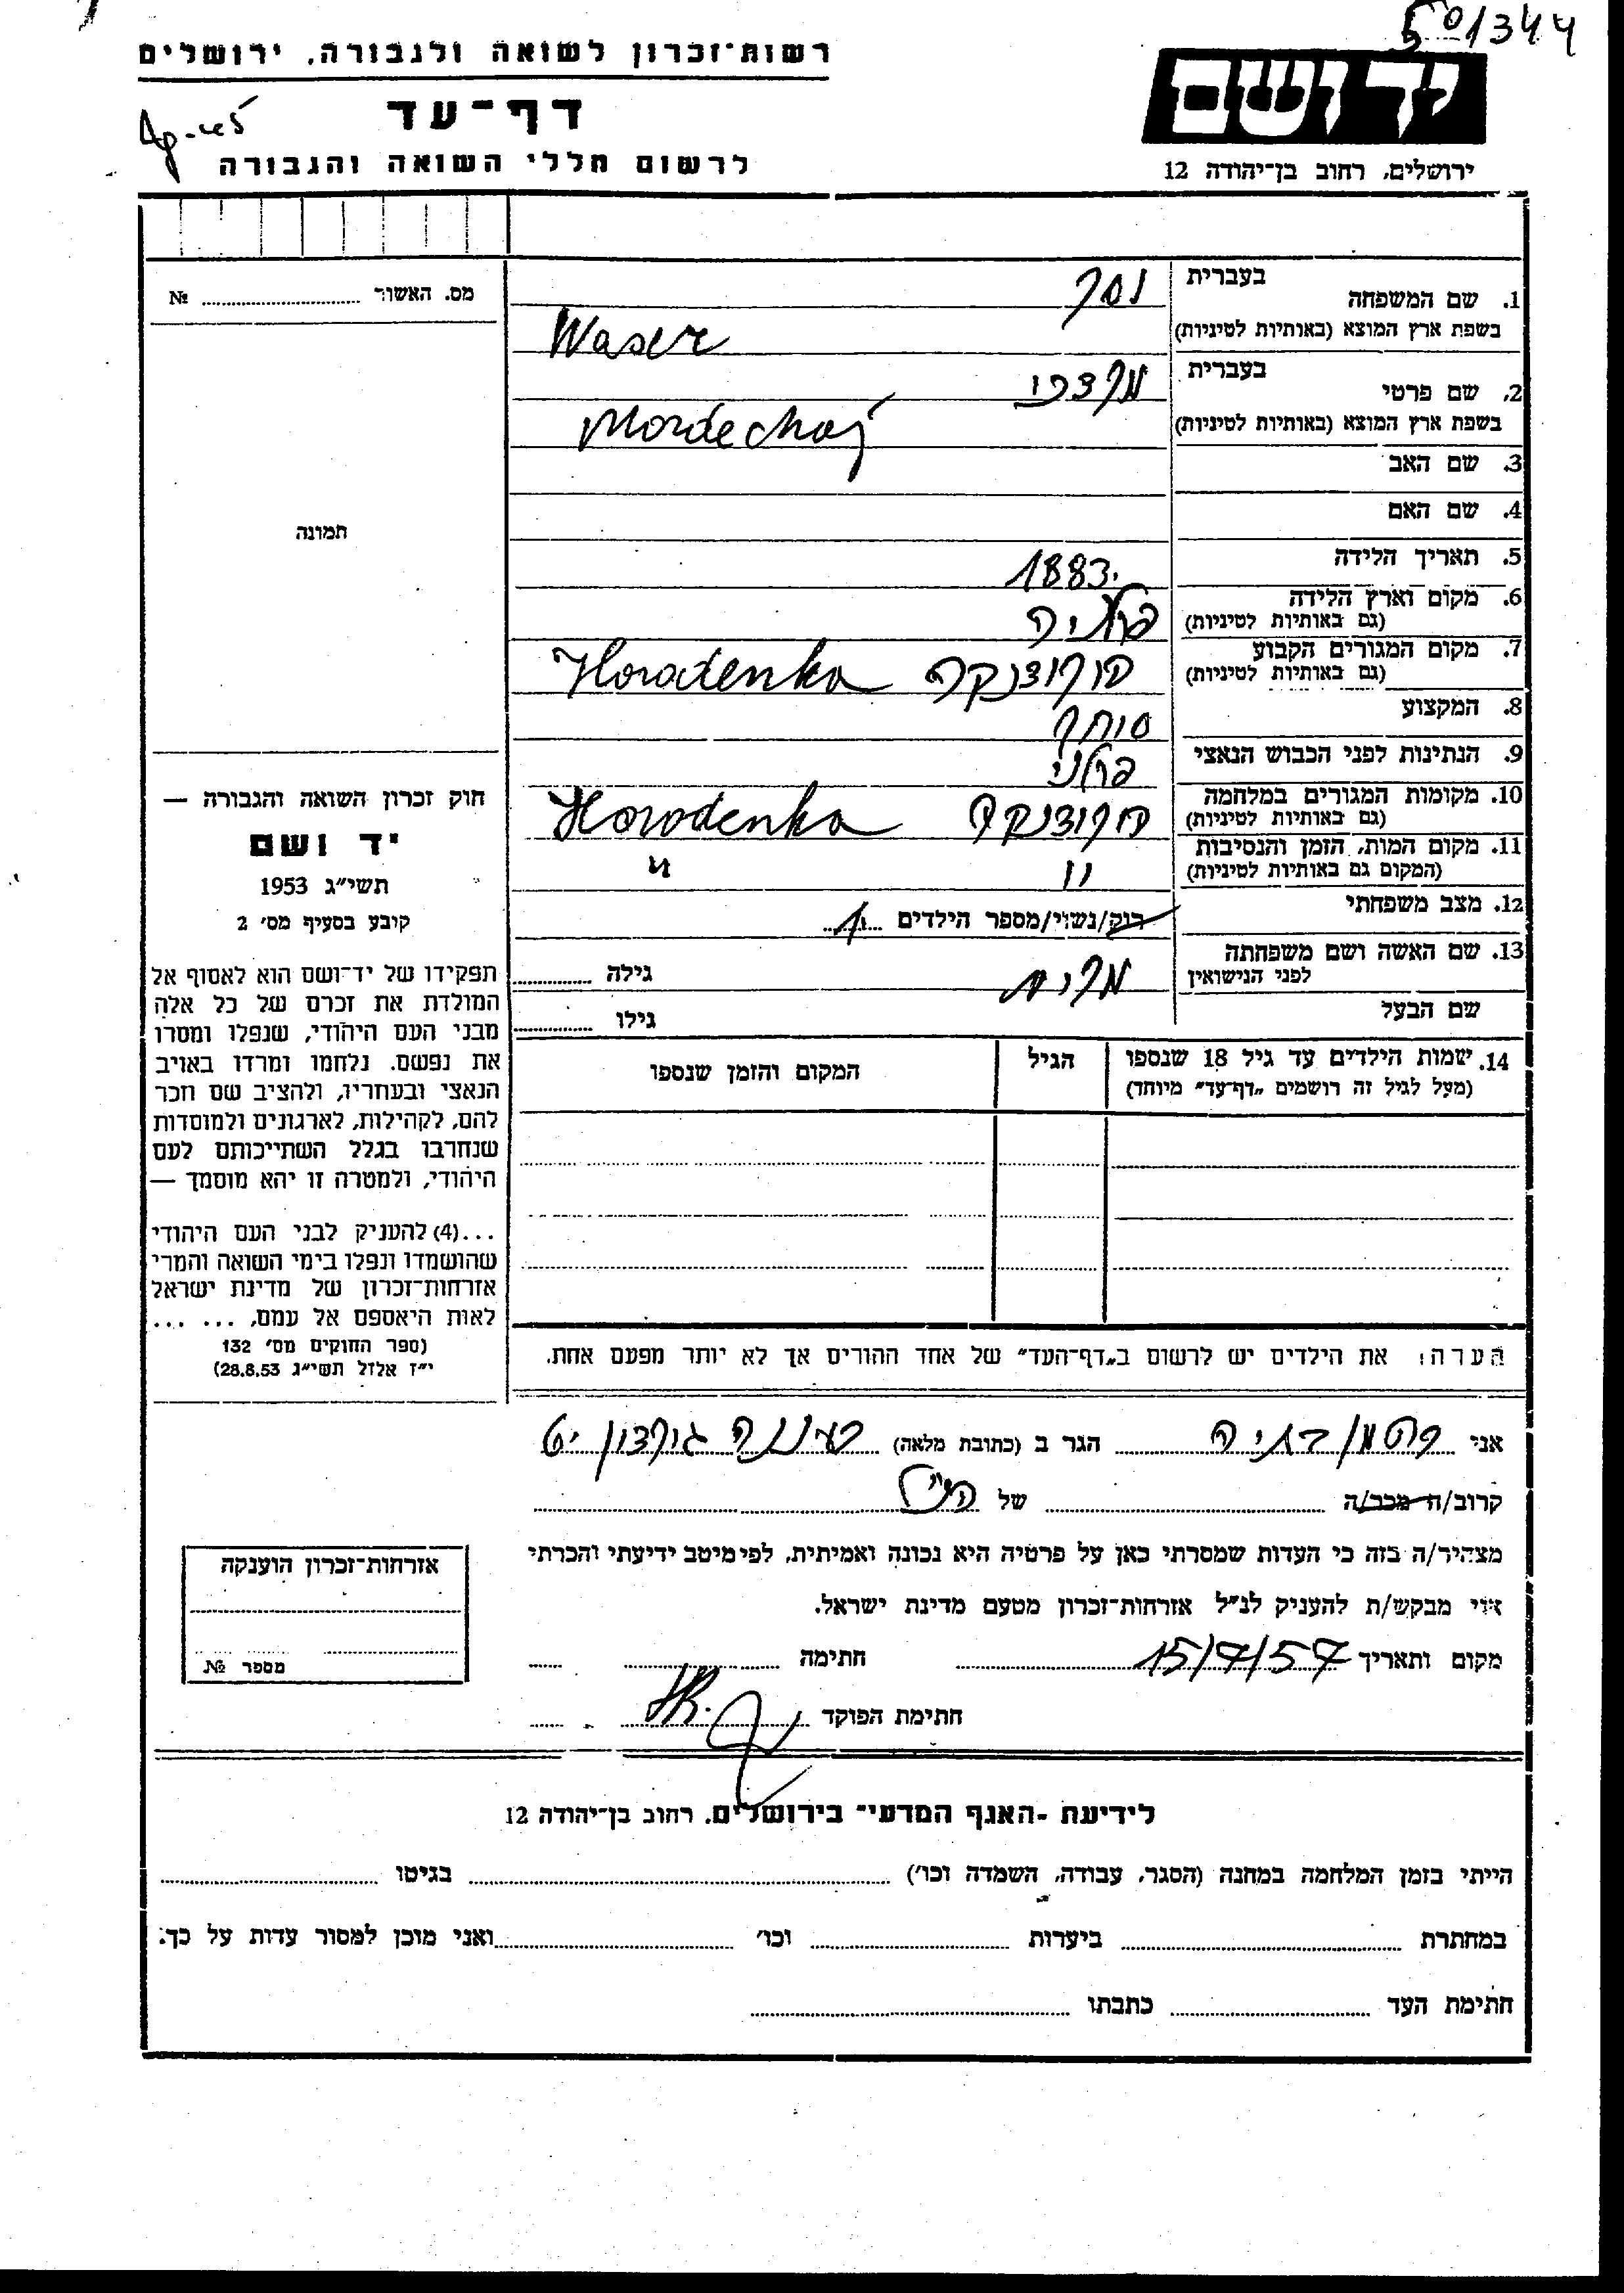 501344
רשות־זכרון לשואה ולגבורה, ירושלים
יד ושם
דף־עד
לרשום חללי השואה והגבורה
ירושלים, רחוב בן־יהודה 12
מס. האשור ........ №
תמונה
1. שם המשפחה בעברית וסר
בשפת ארץ המוצא (באותיות לטיניות) Waser
2. שם פרטי בעברית מרדכי
בשפת ארץ המוצא (באותיות לטיניות) Mordechaj
3. שם האב
4. שם האם
5. תאריך הלידה 1883
6. מקום וארץ הלידה (גם באותיות לטיניות) פולניה
7. מקום המגורים הקבוע (גם באותיות לטיניות) הורודנקה Horodenka
8. המקצוע סוחר
9. הנתינות לפני הכבוש הנאצי פולני
10. מקומות המגורים במלחמה (גם באותיות לטיניות) הורודנקה Horodenka
11. מקום המות, הזמן והנסיבות (המקום גם באותיות לטיניות) " "
12. מצב משפחתי רוק/נשוי/מספר הילדים
13. שם האשה ושם משפחתה לפני הנישואין גילה
שם הבעל גילו
14. שמות הילדים עד גיל 18 שנספו (מעל לגיל זה רושמים "דף־עד" מיוחד)
הגיל
המקום והזמן שנספו
חוק זכרון השואה והגבורה —
יד ושם
תשי"ג 1953
קובע בסעיף מס' 2
תפקידו של יד־ושם הוא לאסוף אל
המולדת את זכרם של כל אלה
מבני העם היהודי, שנפלו ומסרו
את נפשם. נלחמו ומרדו באויב
הנאצי ובעחריו, ולהציב שם וזכר
להם, לקהילות, לארגונים ולמוסדות
שנחרבו בגלל השתייכותם לעם
היהודי, ולמטרה זו יהא מוסמך —
...(4) להעניק לבני העם היהודי
שהושמדו ונפלו בימי השואה והמרי
אזרחות־זכרון של מדינת ישראל
לאות היאספם אל עמם, ... ...
(ספר החוקים מס' 132
י"ז אלול תשי"ג 28.8.53)
הערה: את הילדים יש לרשום ב"דף־העד" של אחד ההורים אך לא יותר מפעם אחת.
אני בתיה הגר ב (כתובת מלאה) רעננה גורדון
קרוב/ה מכר/ה של
מצהיר/ה בזה כי העדות שמסרתי כאן על פרטיה היא נכונה ואמיתית, לפי מיטב ידיעתי והכרתי
אני מבקש/ת להעניק לנ"ל אזרחות־זכרון מטעם מדינת ישראל.
מקום ותאריך 15/7/57 חתימה
חתימת הפוקד
אזרחות־זכרון הוענקה
מספר №
לידיעת -האגף המדעי־ בירושלים, רחוב בן־יהודה 12
הייתי בזמן המלחמה במחנה (הסגר, עבודה, השמדה וכו') בגיטו
במחתרת ביערות וכו' ואני מוכן למסור עדות על כך.
חתימת העד כתבתו